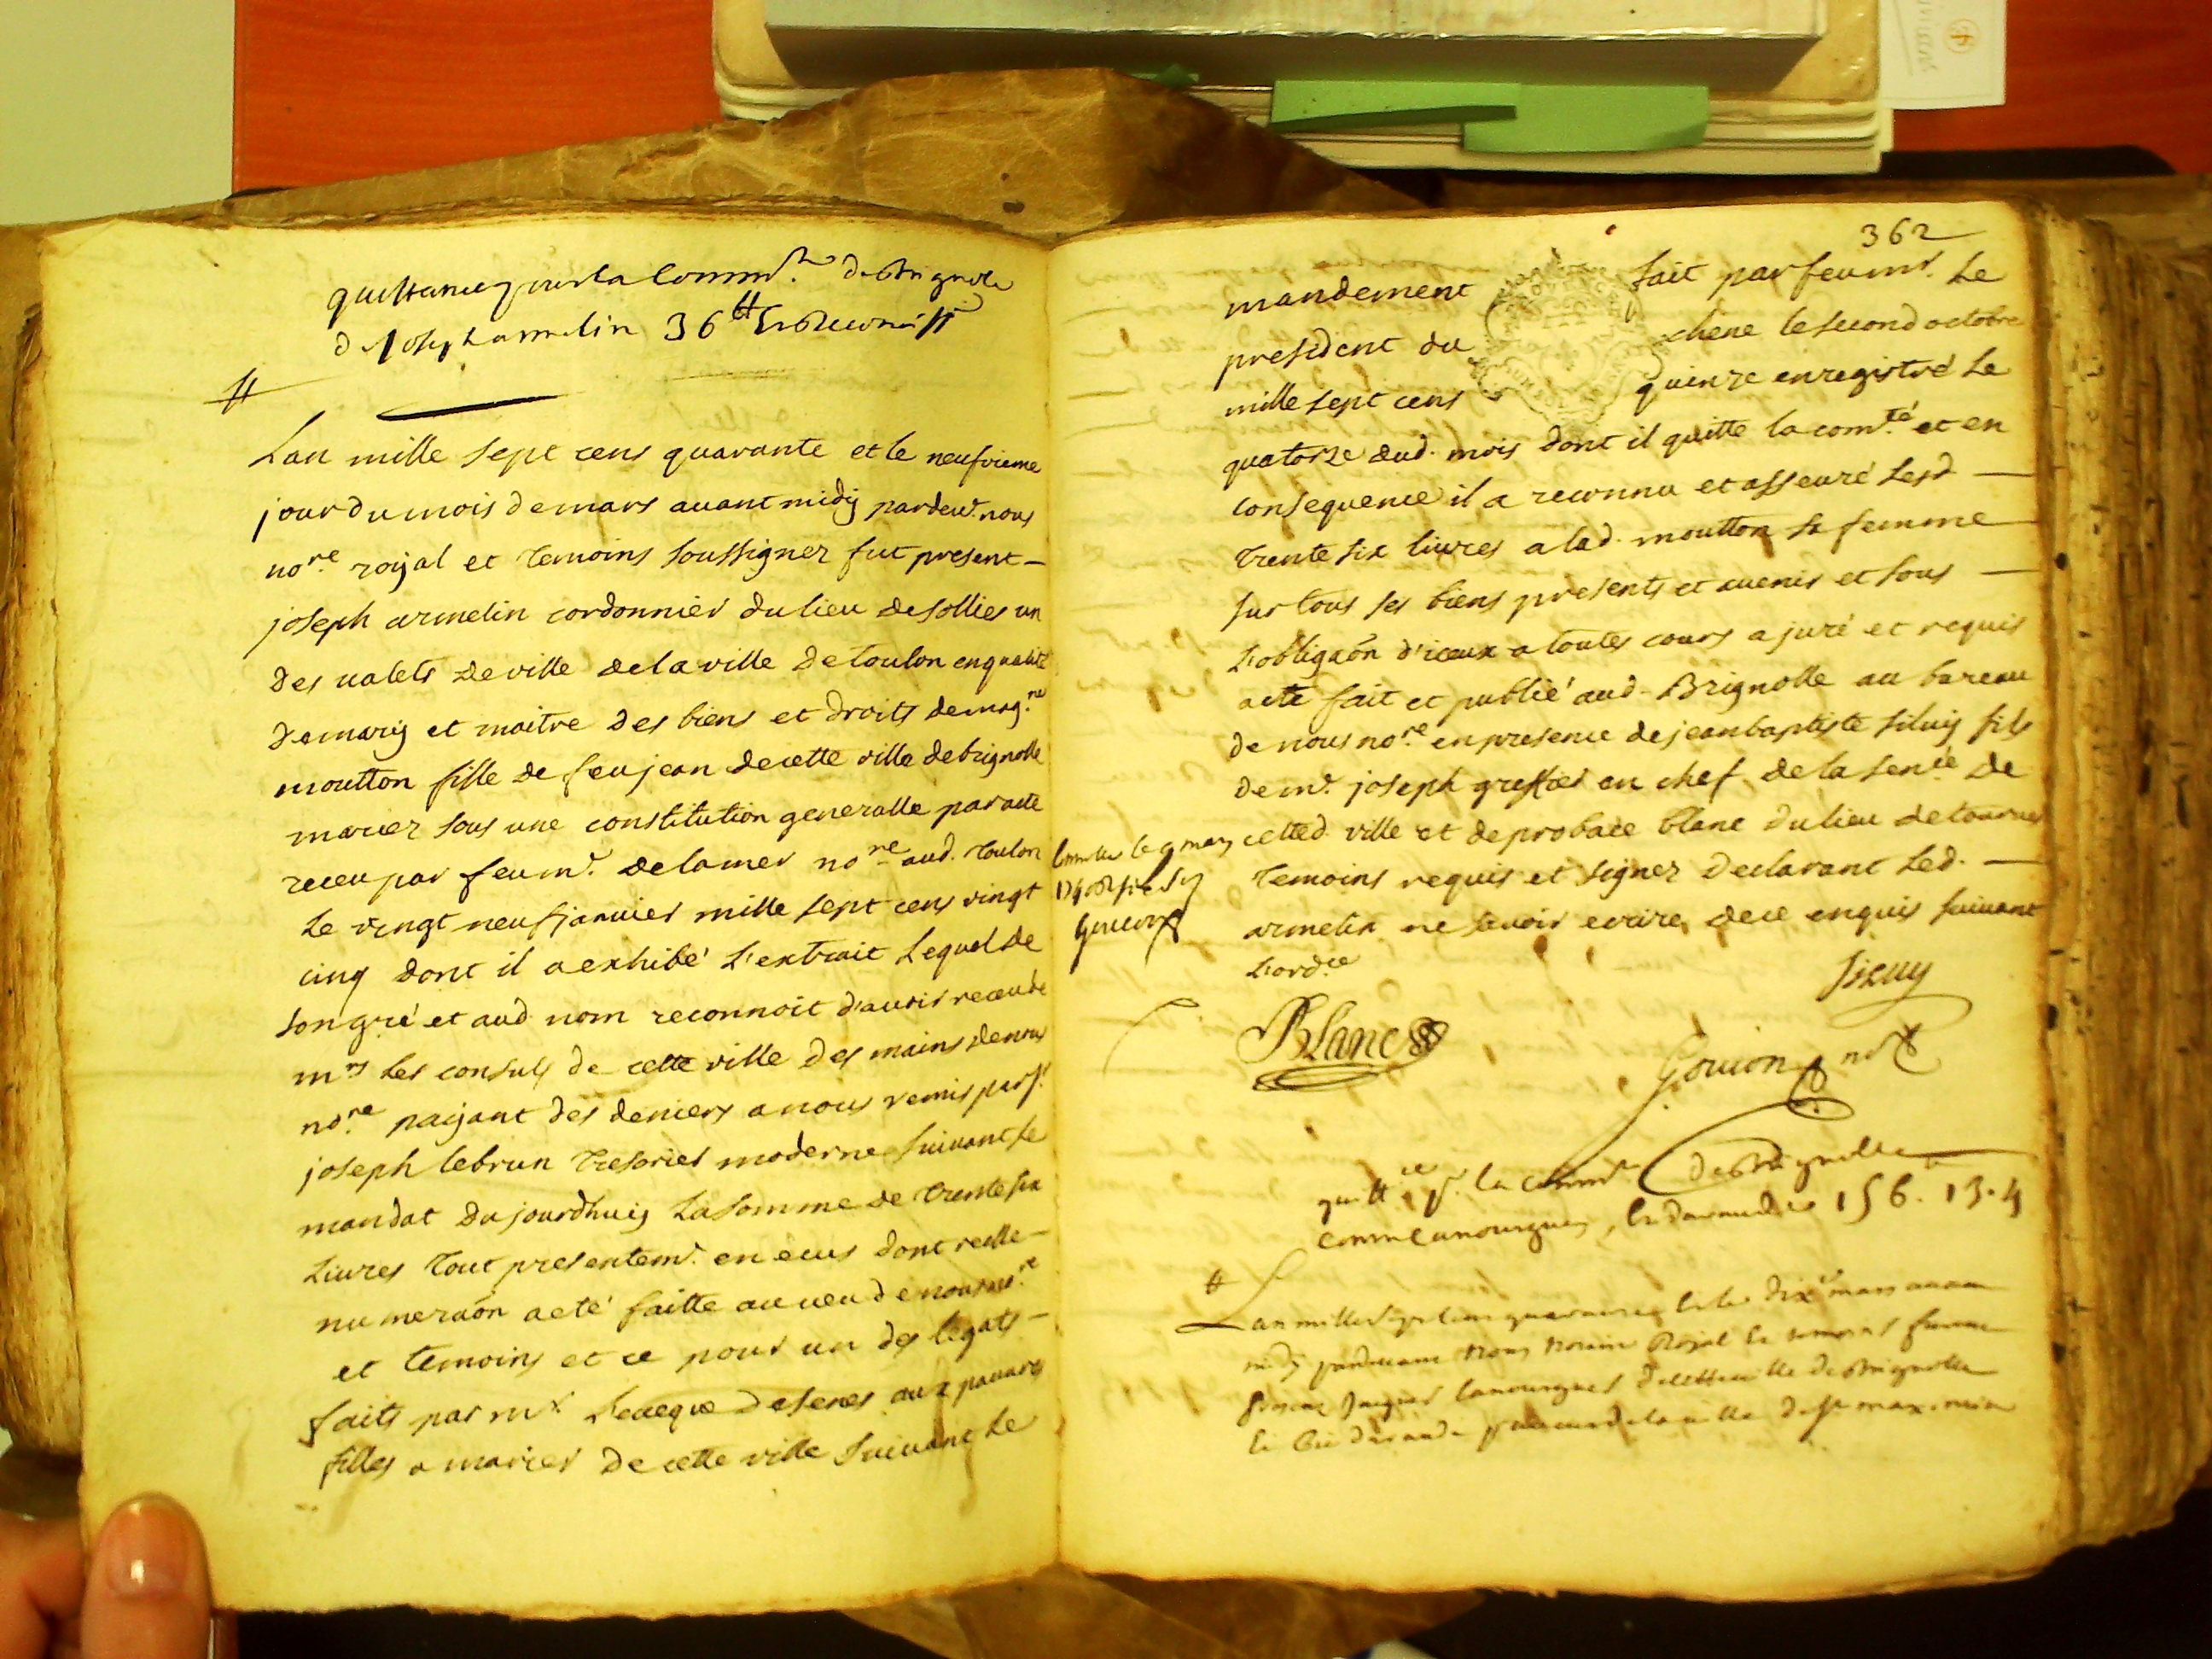 quittance pour la Comm.té de Brignole
de Joseph armelin 36 tt Et Reconoiss
Lan mille sept cens quarante et le neufvieme
jour du mois de mars avant midy pardev.t nous
no.re royal et temoins soussignez fut present —
joseph armelin cordonnier du lieu de sollies un
des valets de ville de la ville de toulon en qualité
de mary et maitre des biens et droits de mag.ne
moutton fille de feu jean de cette ville de brignolle
mariez sous une constitution generalle par acte
receu par feu m.e delamer no.re aud. toulon
Le vingt neuf janvier mille sept cens vingt
cinq dont il a exhibé L'extrait Lequel de
son gré et aud nom reconnoit d'avoir receu de
m.rs Les consuls de cette ville des mains de nous
no.re payant des deniers a nous remis par s.r
joseph lebrun tresorier moderne suivant Le
mandat du jourdhuy La somme de trente six
Livres tout presentem.t en ecus dont reelle —
numeraôn a eté faitte au veu de nous no.re
et temoins et ce pour un des legats —
faits par m.r L'eveque de senes aux pauvres
filles a marier de cette ville suivant Le
362
mandement fait par feu m.r Le
president du chene le second octobre
mille sept cens quinze enregistré Le
quatorze dud. mois dont il quitte la com.té et en
consequence il a reconnu et asseuré Lesd —
trente six livres a lad. moutton sa femme
sur tous ses biens presents et avenir et sous —
L'obligaôn d'iceux a toutes cours a juré et requis
acte fait et publié aud. Brignolle au bureau
de nous no.re en presence de jean baptiste siluy fils
de m.e joseph greffier en chef de la sen.cé de
cetted. ville et de probace blanc du lieu de tourves
temoins requis et signez Declarant Led. —
armelin ne savoir ecrire de ce enquis suivant
L'ord.ce
le 9 mars
Siluy
Blanc
Gouion no.re
quitt.ce p.r la Comm.té de Brignolle
156. 13. 4
Lan mille sept cens quarante et le dix.e mars avant
midy pardevant Nous notaire Royal et temoins furent
de cette ville de Brignolle
de la ville de S.t maximin